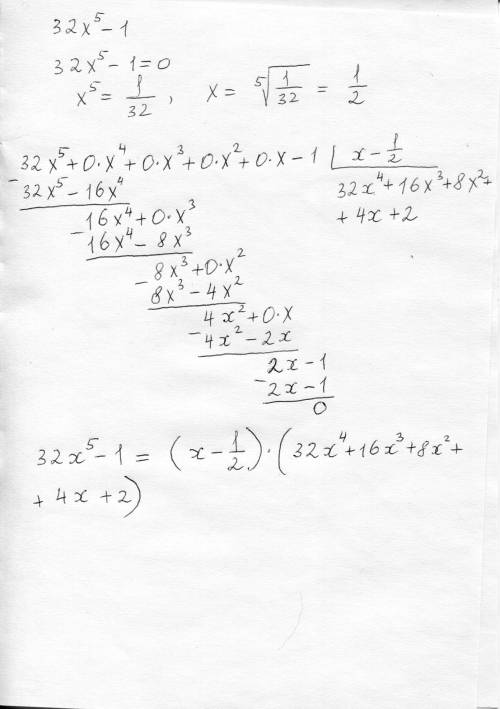 32x⁵ - 1
32x⁵ - 1 = 0
x⁵ = 1/32 , x = ⁵√(1/32) = 1/2
32x⁵ + 0·x⁴ + 0·x³ + 0·x² + 0·x - 1 | x - 1/2
- 32x⁵ - 16x⁴ 32x⁴ + 16x³ + 8x² +
16x⁴ + 0·x³ + 4x + 2
- 16x⁴ - 8x³
8x³ + 0·x²
- 8x³ - 4x²
4x² + 0·x
- 4x² - 2x
2x - 1
- 2x - 1
0
32x⁵ - 1 = (x - 1/2)·(32x⁴ + 16x³ + 8x² +
+ 4x + 2)